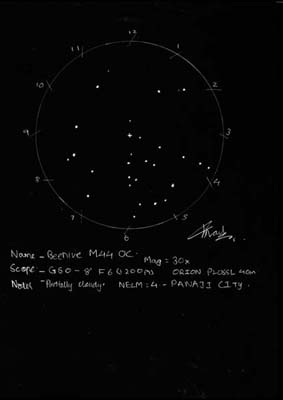 12
11
1
10
2
9
3
8
4
7
5
6
Name - Beehive M44 OC.
Mag: 30x
Scope - GSO - 8" F6 (1200mm) ORION PLOSSL 40m
Notes - Partially cloudy. NELM: 4 - PANAJI CITY.